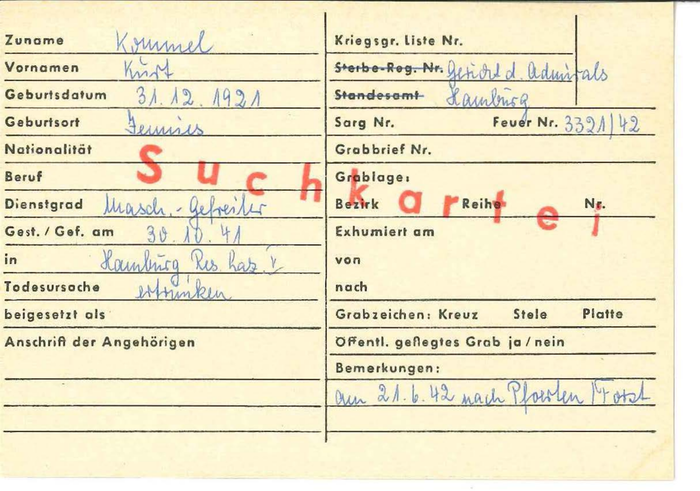 Zuname Kommel
Vornamen Kurt
Geburtsdatum 31.12.1921
Geburtsort
Nationalität
Beruf
Dienstgrad Masch.-Gefreiter
Gest./Gef. am 30.10.41
in Hamburg Res. Laz. V
Todesursache ertrunken
beigesetzt als
Anschrift der Angehörigen
Suchkartei
Kriegsgr. Liste Nr.
Sterbe-Reg. Nr. Gericht d. Admirals
Standesamt Hamburg
Sarg Nr. Feuer Nr. 3321/42
Grabbrief Nr.
Grablage:
Bezirk Reihe Nr.
Exhumiert am
von
nach
Grabzeichen: Kreuz Stele Platte
Öffentl. geflegtes Grab ja/nein
Bemerkungen:
am 21.6.42 nach Pfoerten/Forst